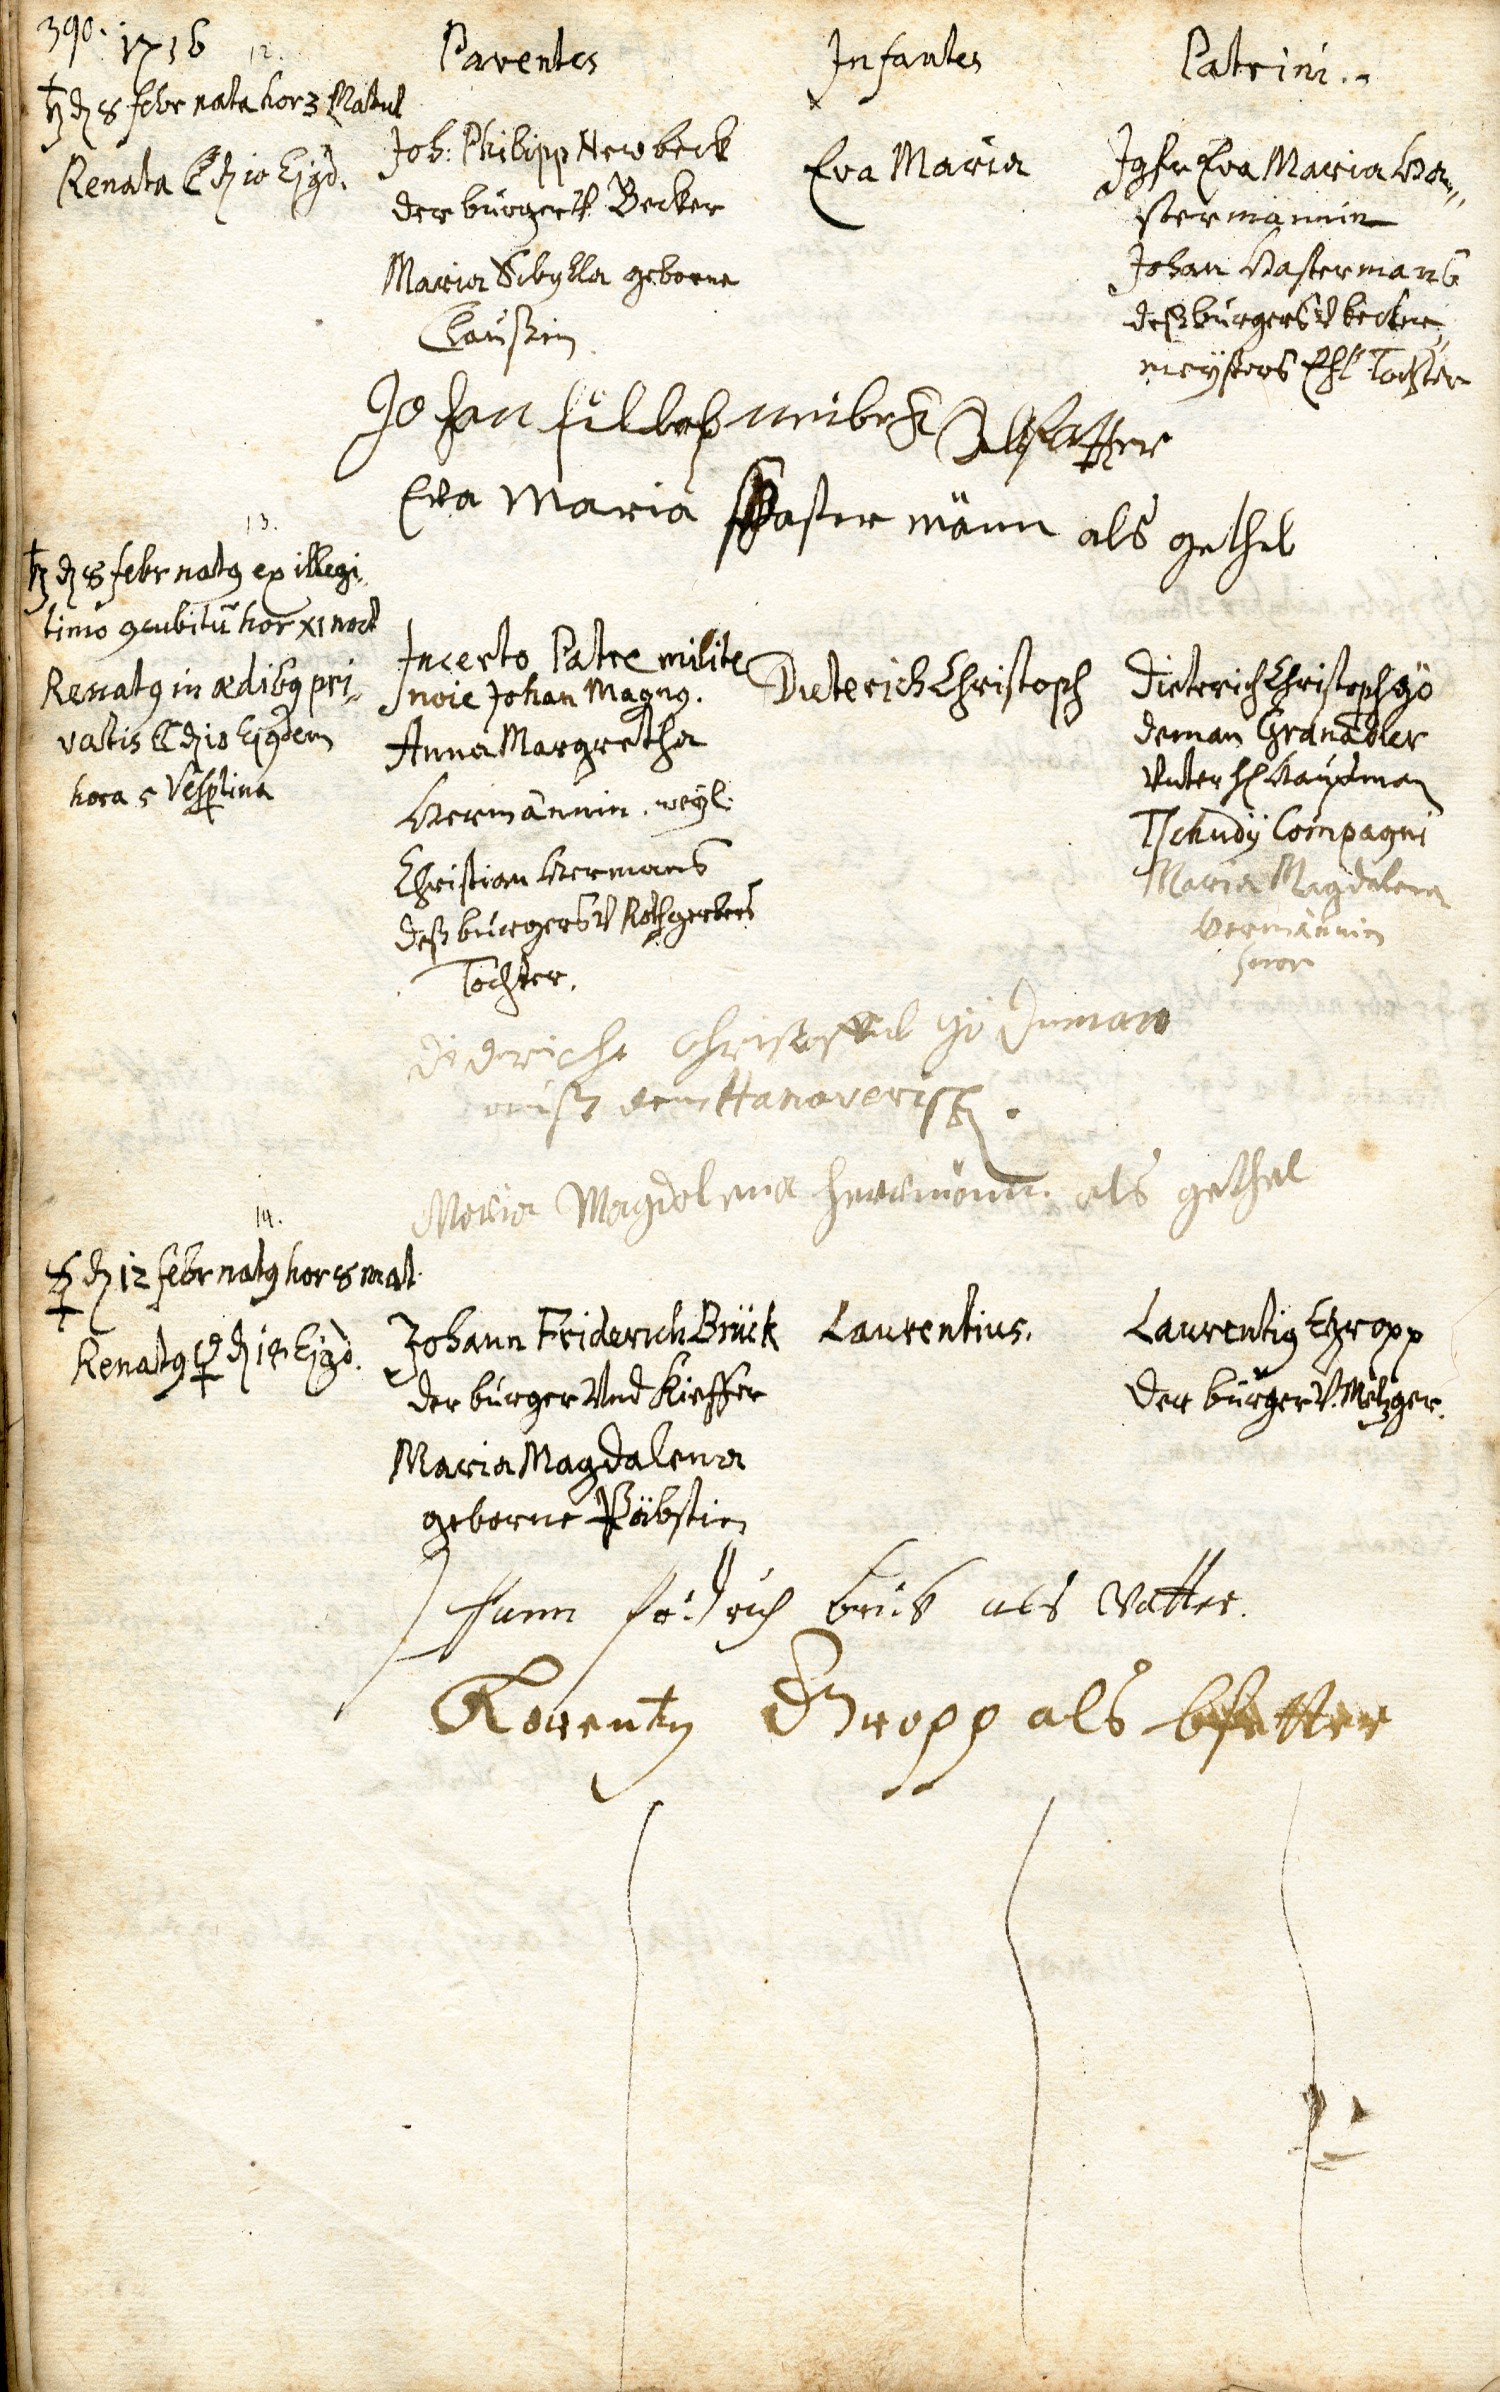 390. 1716
Parentes
Infantes
Patrini.
12.
♄ d 8 febr nata hor 3 Matut
Renata ☾ d 10 Ejgd.
Joh: Philipp Newbeck
der burger V. Becker
Maria Sibylla geborne
Claußin
Eva Maria
Jgfr Eva Maria Ha-
stermannin
Johan Hastermanß
deß burgers V becker
meysters Ehl Tochter
Johan fillebß neübeck Alß fatter
Eva Maria Hastermänn als gethel
13.
♄ d 8 febr natg ex illegi-
timo gcubitu hor XI noct
Renatg in ædibg pri-
vatis ☾ d 10 Ejgdem
hora 5 Vesptina
Incerto Patre milite
noie Johan Magng.
Anna Margretha
Hermännin. weyl.
Christian Hermans
deß burgers V Rothgerbers
Tochter.
Dieterich Christoph
Dieterich Christoph Gö
deman Granadier
Vnter H Hauptman
Tschudÿ Compagni
Maria Magdalena
Hermännin
soror
Diderich Christoffel gödeman
auß dem Hanoverisch.
Maria Magdalena hermänn. als gethel
14.
☿ d 12 febr natg hor 8 mat.
Renatg ♀ d 14 Ejgd.
Johann Friderich Brück
der burger Vnd Kieffer
Maria Magdalena
geborne Päbstin
Laurentius.
Laurentig Gropp
der burger V. Metzger.
Johann fridrich brück als vatter.
Lorentz Gropp als pfetter